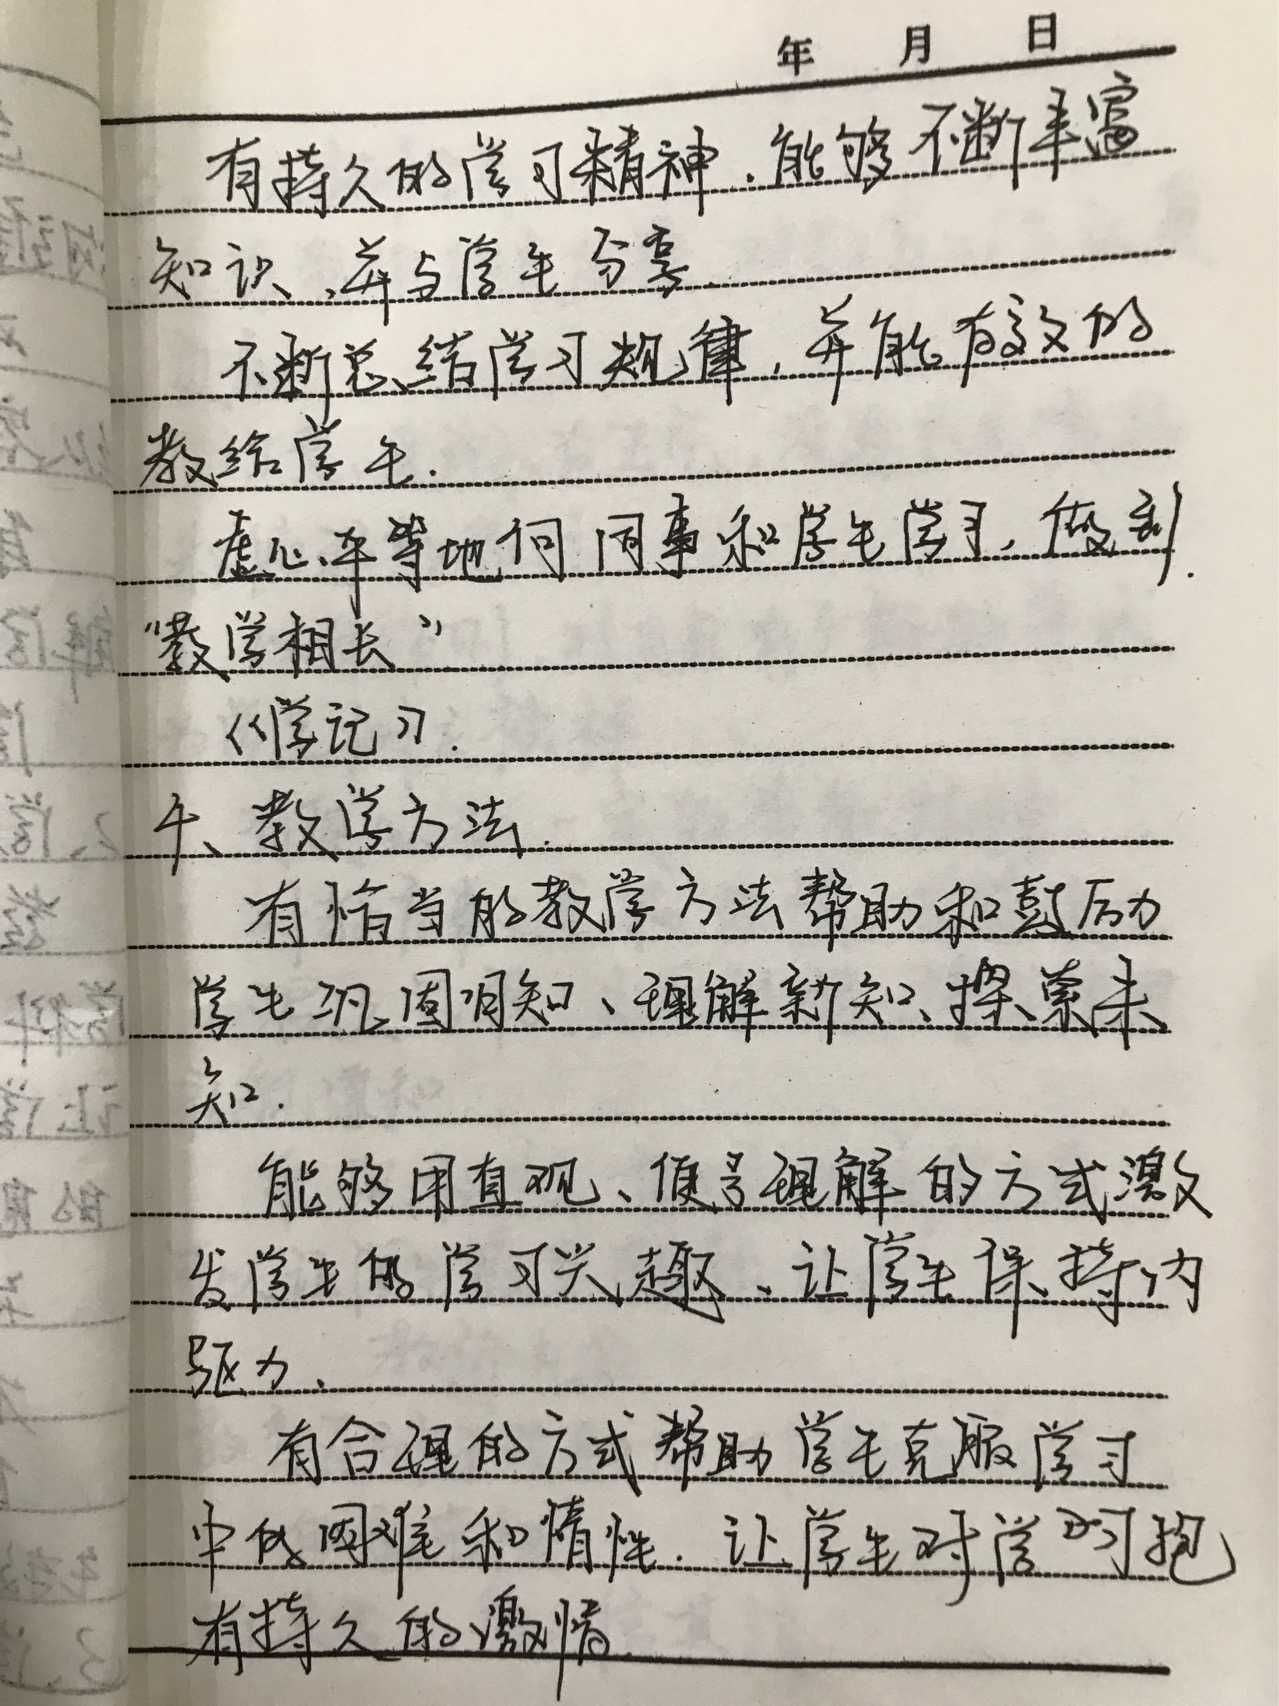 年 月 日
有持久的学习精神，能够不断丰富
知识，并与学生分享.
不断总结学习规律，并能有效的
教给学生.
虚心、平等地向同事和学生学习，做到
“教学相长”
《学记》.
十、教学方法.
有恰当的教学方法帮助和鼓励
学生巩固旧知、理解新知、探索未
知.
能够用直观、便于理解的方式激
发学生的学习兴趣、让学生保持内
驱力、
有合理的方式帮助学生克服学习
中的困难和惰性. 让学生对学习抱
有持久的激情.